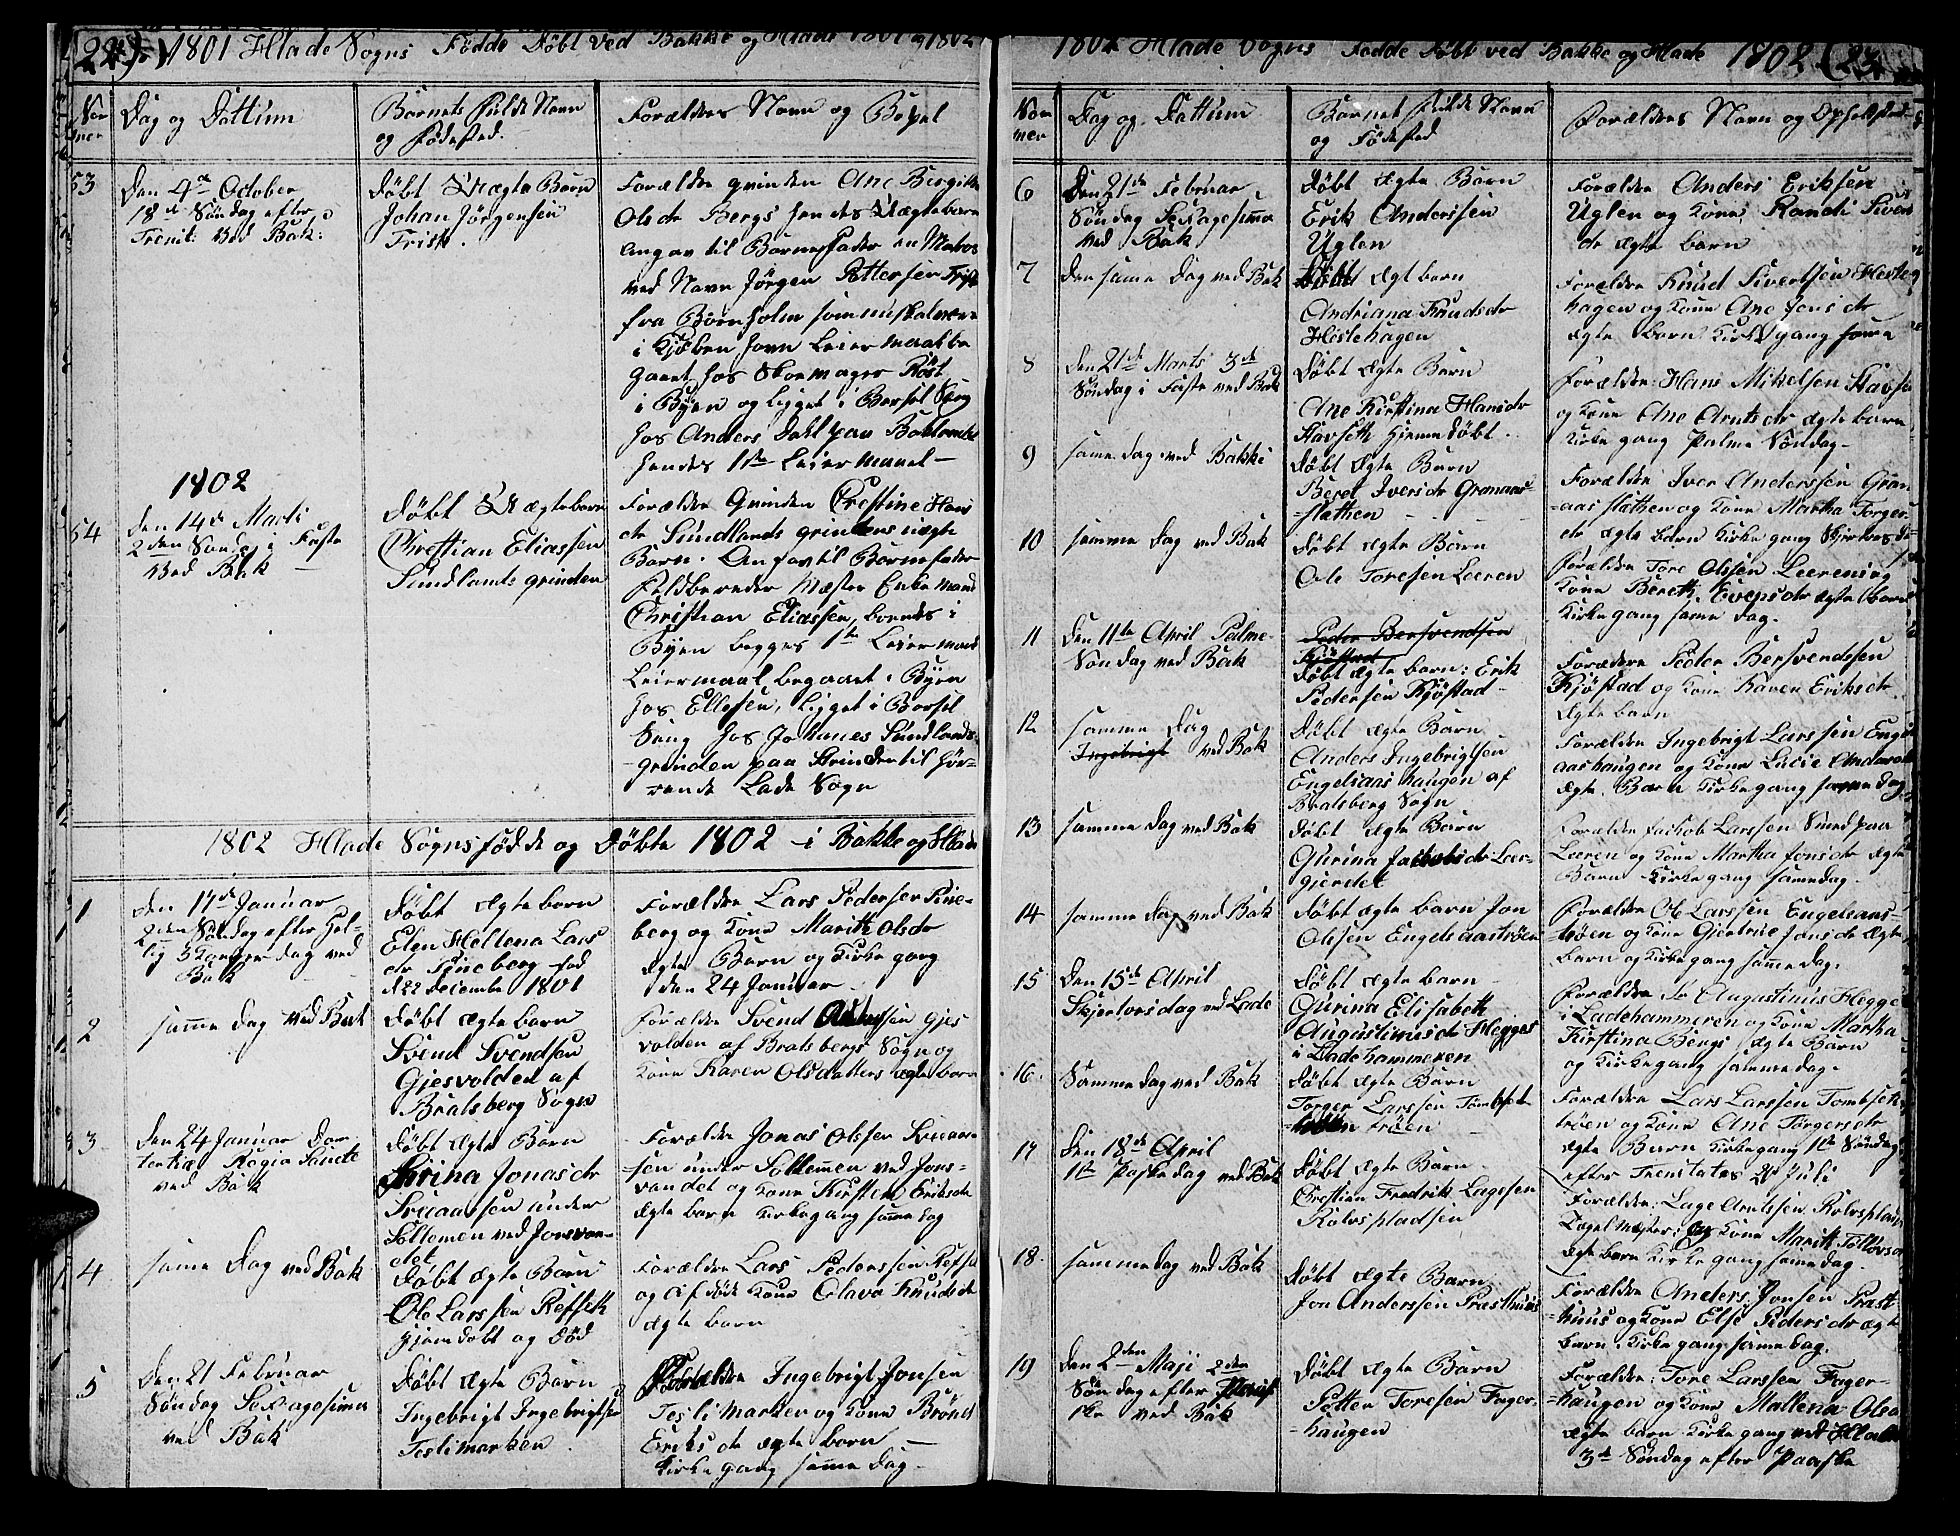 22) 1801 Hlade Sogns Fødde Døbt ved Bakke og Hlade 1801 og 1802
No mer
Dag og Dattum
Barnets fulde Navn
og Fødested.
Forældres Navn og Bopel
53
Den 4de October
18de Søndag efter
Trenit: ved Bak:
Døbt Uægte Barn
Johan Jørgensen
Trist.
Forældre qvinden Ane Bergitte
Olsdr Bergs hendes Uægte barn
angav til Barnefader en Matros
ved Navn Jørgen Pettersen Trist
fra Bornholm som nu skal være
i Kjøbenhavn Leiermaal be
gaaet hos Skoemager Röst
i Byen og ligget i Barsel Seng
hos Anders Dahl paa Baklandet
hendes 1ste Leiermaael -
1802
54
Den 14de Marti
2den Søndag i Faste
ved Bak
Døbt Uægte barn
Christian Eliassen
Sundlands grinden
Forældre Qvinden Chrestine Hans
dr Sundlands grindens uægte
Barn. Angav til Barnefader
Feldbereder Mæster Enkemand
Christian Eliassen, boende i
Byen begges 1ste Leiermaal
Leiermaal begaaet i Byen
hos Ellesen, ligget i Barsel
Seng hos Johannes Sundlands-
grinden paa Strinden til hør-
rende Lade Sogn
1802 Hlade Sogns fødde og Døbte 1802 - i Bakke og Hlade
1
Den 17de Januar
2den Søndag efter Hel-
lig 3 Konger dag ved
Bak
Døbt ægte barn
Elen Hellena Lars
dr Pineberg fød
d 22 December 1801
Forældre Lars Pedersen Pine-
berg og Kone Marith Olsdr
ægte Barn og Kirkegang
den 24 Januar
2
samme dag ved Bak
Døbt ægte barn
Svend Svendsen
Gjesvolden af
Bratsberg Sogn
Forældre Svend Gjes
volden af Bratsbergs Sogn og
Kone Karen Olsdatters ægte barn
3
Den 24 Januar Dom
tertiæ Regia Sancte
ved Bak
Døbt ægte Barn
Jonasdr
Sviaasen under
Sollemen ved Jonsvan-
det
Forældre Jonas Olssen Sviaas-
sen under Sollemen ved Jons-
vandet og Kone Kirsten Eriksdr
ægte barn Kirkegang samme dag
4
samme Dag ved Bak
Døbt ægte Barn
Ole Larssen Reffset
hjemdøbt og død
Forældre Lars Pederssen Refset
og afdøde Kone Olava Knudsdr
ægte barn
5
Den 21 Februar
Søndag Sexagesima
ved Bak
Døbt ægte Barn
Ingebrigt Ingebrigtsen
Teslimarken
Forældre Ingebrigt Jonsen
Teslimarken og Kone
Eriksdr ægte barn -
Kirkegang samme dag -
1802 Hlade Sogns Fødde Døbt ved Bakke og Hlade 1802 (23
No mer
Dag og Dattum
Barnet fulde Navn
og Fødested
Forældres Navn og Opholdsted
6
Den 21de Februar
Søndag Sexagesima
ved Bak
Døbt ægte Barn
Erik Anderssen
Uglen
Forældre Anders Eriksen
Uglen og Kone Randi Siverts
dr ægte barn
7
den same Dag ved Bak
Døbt ægt barn
Andriana Knudsdr
Hestehagen
Forældre Knud Sivertsen Heste
hagen og Kone Ane Jonsdr
ægte barn Kirkegang same
8
Den 21de Marts 3de
Søndag i Faste ved Bak
Døbt ægte Barn
Ane Kirstina Hansdr
Stavseth hjemedøbt.
Forældre: Hans Mikelsen Stavse
og Kone Ane Arntsdr ægte barn
Kirkegang Palme Søndag -
9
same dag ved Bakke
Døbt ægte Barn
Beret Iversdr Granaas-
-slethen
Forældre Iver Anderssen Gran
-aas slethen og Kone Martha Torger
dr ægte barn Kirkegang Skjertorsda
10
samme Dag ved Bak
Døbt ægte Barn
Ole Toresen Leeren
Forældre Tore Olssen Leeren og
Kone Bereth Evensdr ægte barn
Kirkegang same dag.
11
Den 11te April Palme-
Søndag ved Bak
Peder Bersvendsen
Kjøstad
Døbt ægte barn: Erik
Pedersen Kjøstad -
Forældre Peder Bersvendssen
Kjøstad og Kone Karen Eriksdr
ægte barn
12
samme Dag
Ingebrigt ved Bak
Døbt ægte Barn
Anders Ingebrigtsen
Engelsaas haugen af
Bratsberg Sogn
Forældre Ingebrigt Larssen Engels
aashaugen og Kone Lucie Andersdr
ægte Barn Kirkegang samme dag
13
samme dag ved Bak
Døbt ægte Barn
Gurina Jachobsdr Leer-
gjerdet
Forældre Jachob Larssen Smed paa
Leeren og Kone Martha Jonsdr ægte
Barn Kirkegang samme dag.
14
samme dag ved Bak
Døbt ægte barn Jon
Olssen Engelsaastrøen
Forældre Ole Larssen Engelsaas-
-trøen og Kone Gjertrue Jonsdr ægte
barn og Kirkegang samme dag.
15
Den 15de April
Skjertorsdag ved Lade
Døbt ægte barn
Gurina Elisabeth
Augustinusdr Hegges
i Ladehammeren
Forældre Augustinus Hegge
i Ladehammeren og Kone Martha
Kirstina Bergs ægte Barn
og Kirkegang samme dag.
16
Samme dag ved Bak
Døbt ægte Barn
Torger Larssen Tombset
trøen
Forældre Lars Larssen Tombset-
trøen og Kone Ane Torgersdr
ægte Barn Kirkegang 1ste Søndag
efter Trenitates Juli
17
Den 18de April
1ste Paaskedag ved Bak
Døbt ægte Barn
Chrestian Fredrik Lagessen
Rotvolpladsen
Forældre: Lage Arntssen
og Kone Marith
ægte barn Kirkegang samme dag.
18
samme dag ved Bak
Døbt ægte Barn
Jon Anderssen Præsthuus
Forældre Anders Jonsen Præst
huus og Kone Else Pedersdr ægte
barn Kirkegang samme dag.
19
Den 2den Maji 2den
Søndag efter Paa
ske ved Bak
Døbt ægte Barn
Petter Toresen Fager-
-haugen
Forældre: Tore Larssen Fager-
-haugen og Kone Mallena Olsdr
ægte barn Kirkegang ved Hlade
3de Søndag efter Paaske